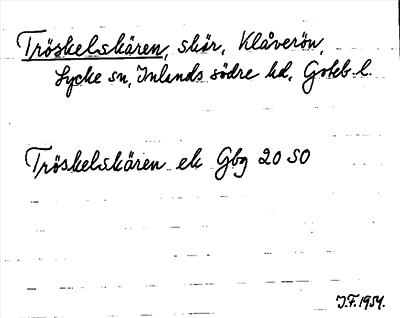 Tröskelskären, skär, Klåverön,
Lycke sn, Inlands södre hd, Göteb. l.
Tröskelskären ek Gbg 20 SO
J.F. 1954.